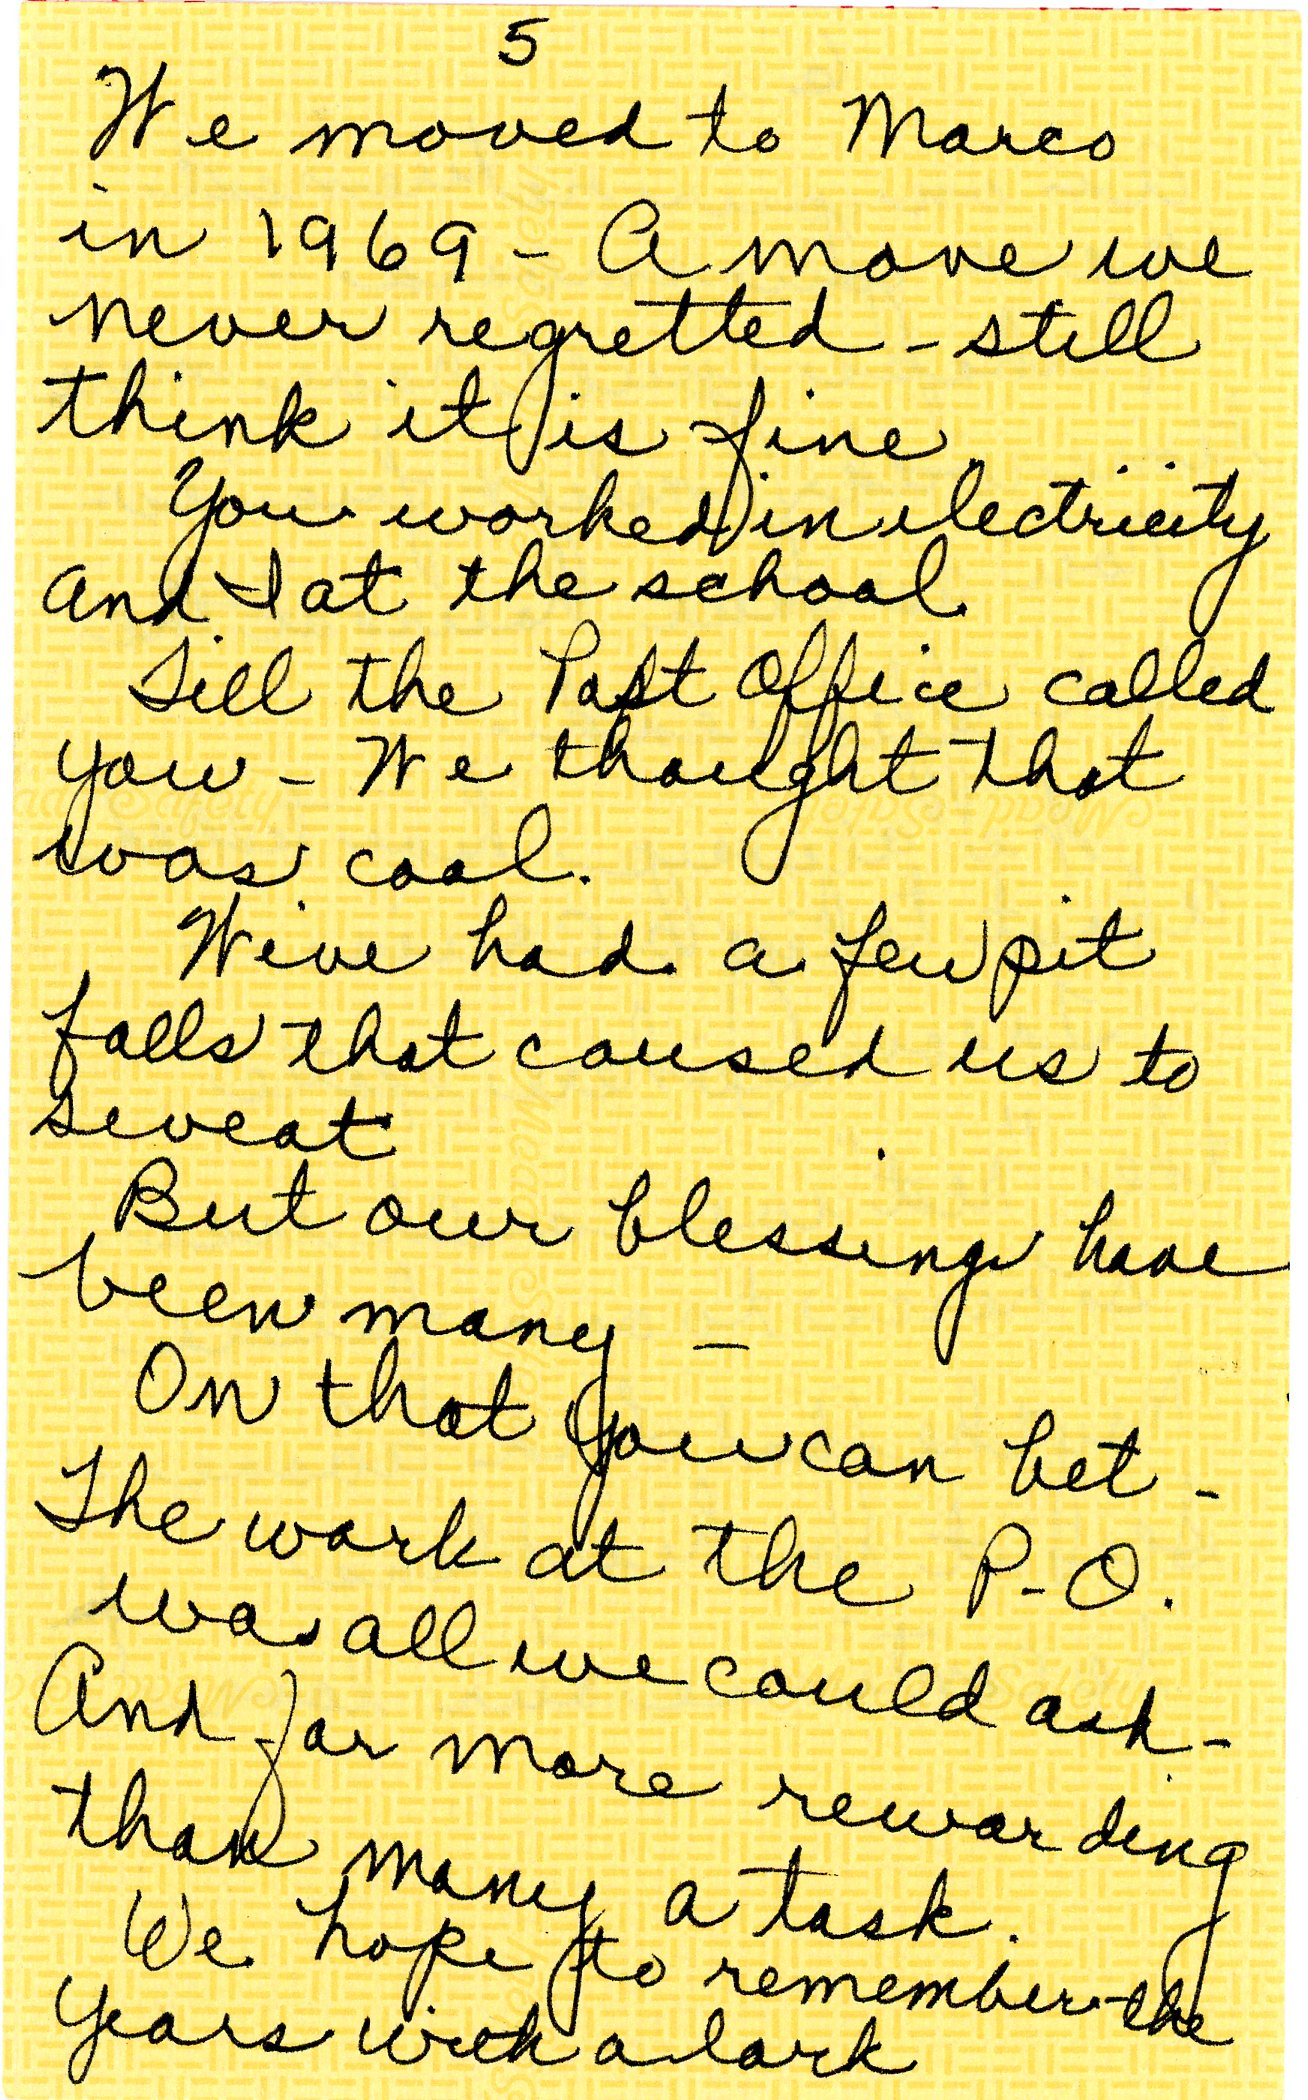 5
We moved to Marco
in 1969 - A move we
never regretted - still
think it is fine.
You worked in electricity
and I at the school
Till the Post Office called
you - We thought that
was cool.
We've had a few pit
falls that caused us to
sweat
But our blessings have
been many -
On that you can bet -
The work at the P-O.
was all we could ask -
And far more rewarding
than many a task.
We hope to remember the
years with a lark